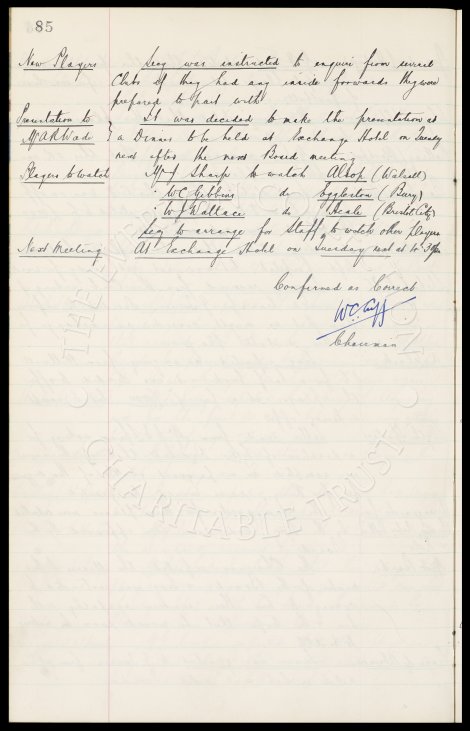 85
New Players Secy was instructed to enquire from several
Clubs if they had any inside forwards they were
prepared to part with
Presentation to It was decided to make the presentation at
Mr A R Wade } a Dinner to be held at Exchange Hotel on Tuesday
next after the next Board meeting
Players to watch Mr J Sharp to watch Alsop (Walsall)
" W C Gibbins do Eggleston (Bury)
" W J Wallace do Heale (Bristol City)
Secy to arrange for Staff to watch other players
Next Meeting At Exchange Hotel on Tuesday next at
Confirmed as Correct
W C Cuff
Chairman
CHARITABLE TRUST